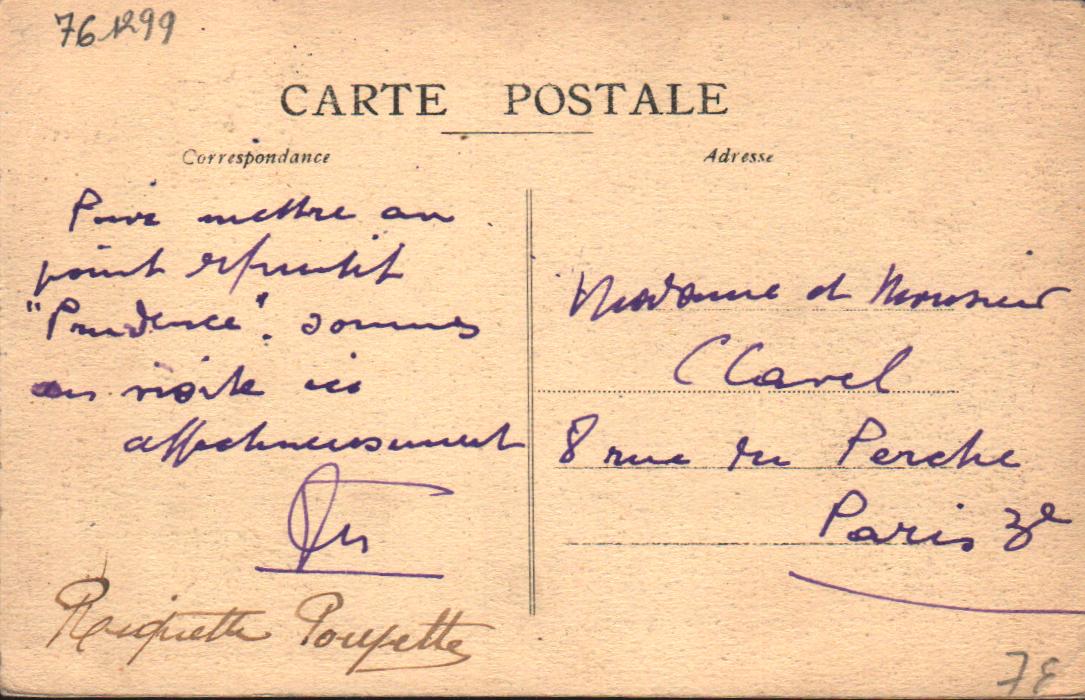 761299
CARTE POSTALE
Correspondance
Adresse
Pour mettre au
point
"Prudence". sommes
en visite ici
affectueusement
Poupette
Madame et Monsieur
Clavel
8 rue du Perche
Paris 3e
7E